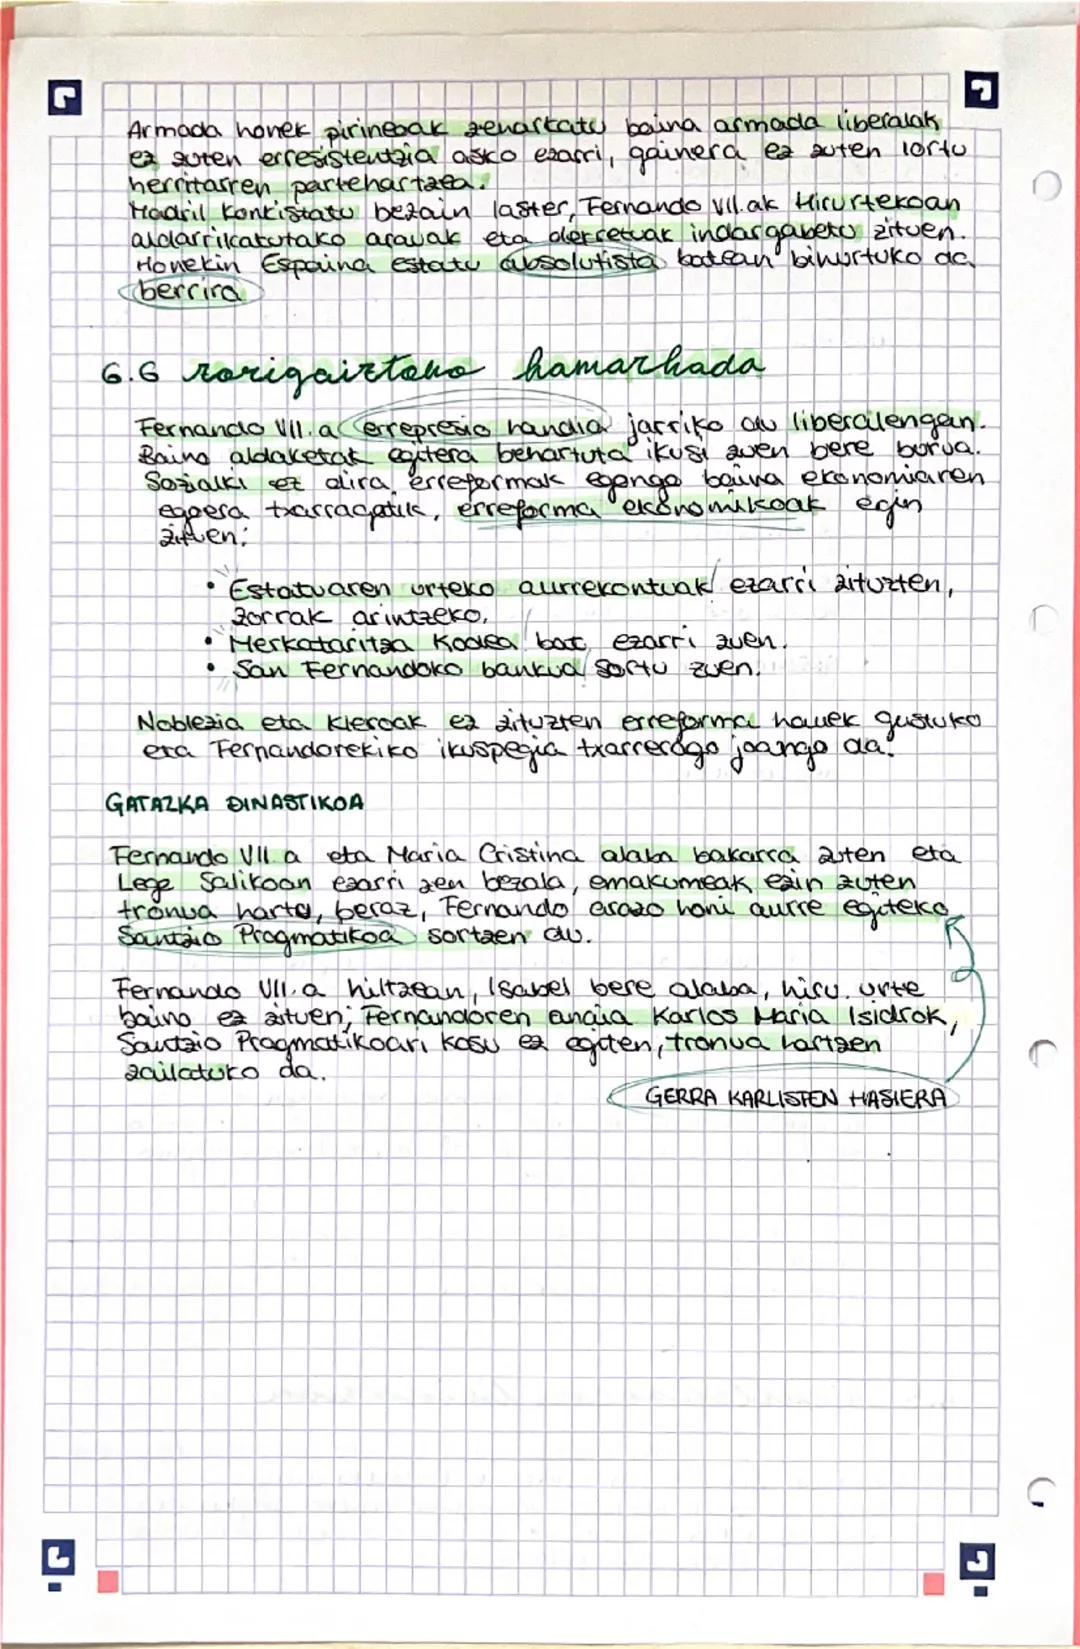 Armada honek pirineoak zeharkatu baina armada liberalak
ez zuten erresistentzia asko ezarri, gainera ez zuten lortu
herritarren partehartzea.
Madril konkistatu bezain laster, Fernando VII.ak Hirurtekoan
aldarrikatutako arauak eta dekretuak indargabetu zituen.
Honekin Espaina estatu absolutista batean bihurtuko da
berrira
6.6 hamarkada
Fernando VII.a errepresio handia jarriko du liberalengan.
Baina aldaketak egitera behartuta ikusi zuen bere burua.
Sozialki ez dira erreformak egongo baina ekonomiaren
egoera txarragatik, erreforma ekonomikoak egin
zituen:
• Estatuaren urteko aurrekontuak ezarri zituzten,
zorrak arintzeko.
• Merkataritza Kodea bat ezarri zuen.
• San Fernandoko bankua sortu zuen.
Noblezia eta kleroak ez zituzten erreforma hauek gustuko
eta Fernandorekiko ikuspegia txarrerago joango da.
GATAZKA DINASTIKOA
Fernando VII.a eta Maria Cristina alaba bakarra zuten eta
Lege Salikoan ezarri zen bezala, emakumeak ezin zuten
tronua hartu, beraz, Fernando arazo honi aurre egiteko
Santzio Pragmatikoa sortzen du.
Fernando VII.a hiltzean, Isabel bere alaba, hiru urte
baino ez zituen; Fernandoren anaia Karlos Maria Isidrok,
Santzio Pragmatikoari kasu ez egiten, tronua hartzen
zailatuko da.
GERRA KARLISTEN HASIERA